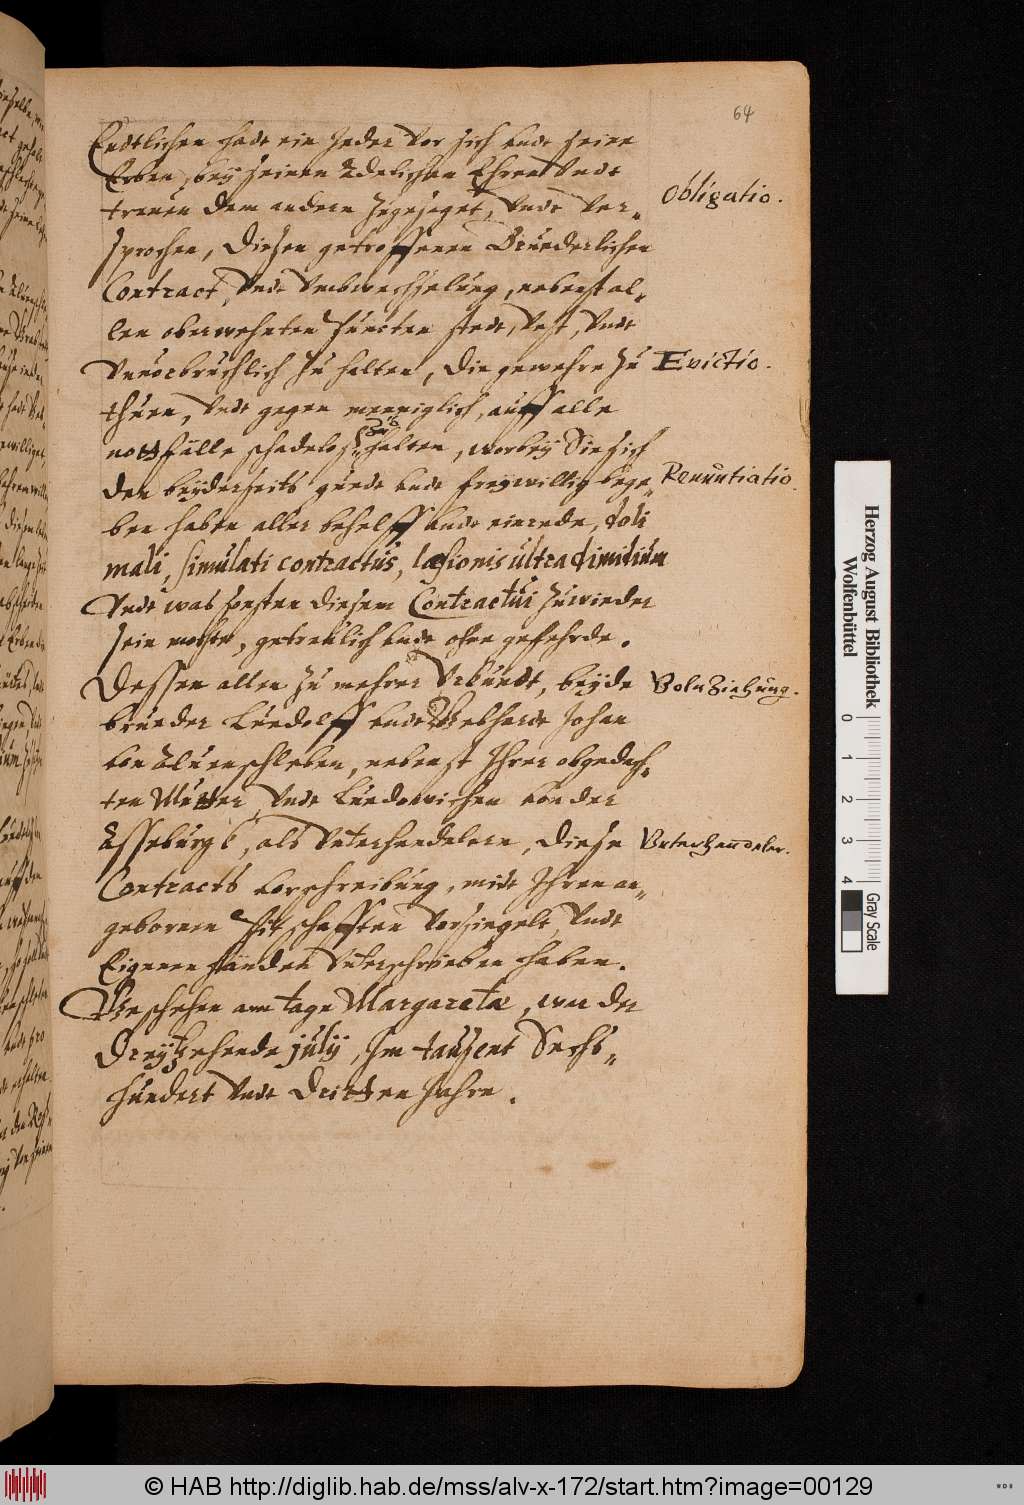 64
Endtlichen hadt ein Jeder vor sich vndt seine
Erben, bey seinen Adelichen Ehren Vndt
trewen dem andern zugesaget, Vndt ver„
sprochen, diesen getroffenen Brüederlichen
Contract, Vndt Vmbwechselung, nebenst al„
len obenwehnten Puncten stedt, Vest, Vndt
Vnuorbruchlich zu halten, die gewehre zu
thuen, Vndt gegen menniglich, auff alle
nottfälle schadeloß zu halten, worbey Sie sich
den beyderseits guedt vndt freywillig bege„
ben haben aller behelff vndt einrede, doli
mali, simulati contractus, læsionis ultra dimidium
Vndt was sonsten diesem Contractui zuwieder
sein mochte, getreulich vndt ohne gefehrde.
Dessen allen zu mehrer Vrkundt, beyde
brueder Luedolff vndt Gebhardt Johan
von Aluenschleben, nebenst Ihrer obgedach„
ten Mutter, Vndt Luedowichen von der
Asseburgk, als Vnterhendelern, diese
Contracts vorschreibung, midt Ihren an„
gebornen Pitschafften vorsiegelt, Vndt
Eigenen händen Vnterschrieben haben.
Geschehen am tage Margaretæ, war der
Dreyzehende julij, Im tausent Sechs„
hundert Vndt Dritten Jahre.
Obligatio.
Evictio.
Renuntiatio.
Volnziehung.
Vnterhendeler.
Herzog August Bibliothek
Wolfenbüttel
0 1 2 3 4
Gray Scale
© HAB http://diglib.hab.de/mss/alv-x-172/start.htm?image=00129